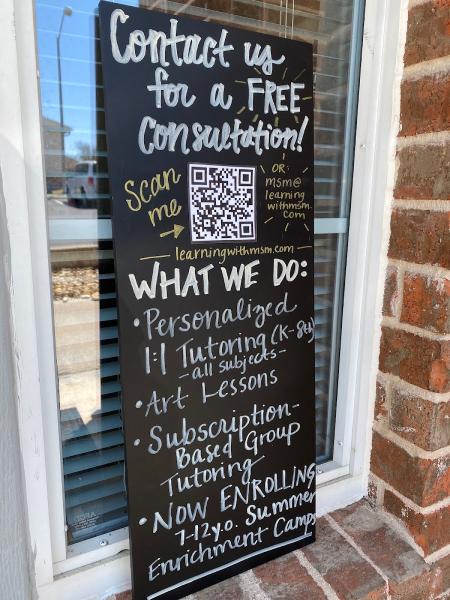 Contact us
for a FREE
Consultation!
Scan
me
OR:
msm@
learning
withmsm.
com
learningwithmsm.com
WHAT WE DO:
• Personalized
1:1 Tutoring (K-8th)
- all subjects -
• Art Lessons
• Subscription-
Based Group
Tutoring
• NOW ENROLLING
7-12y.o. Summer
Enrichment Camps